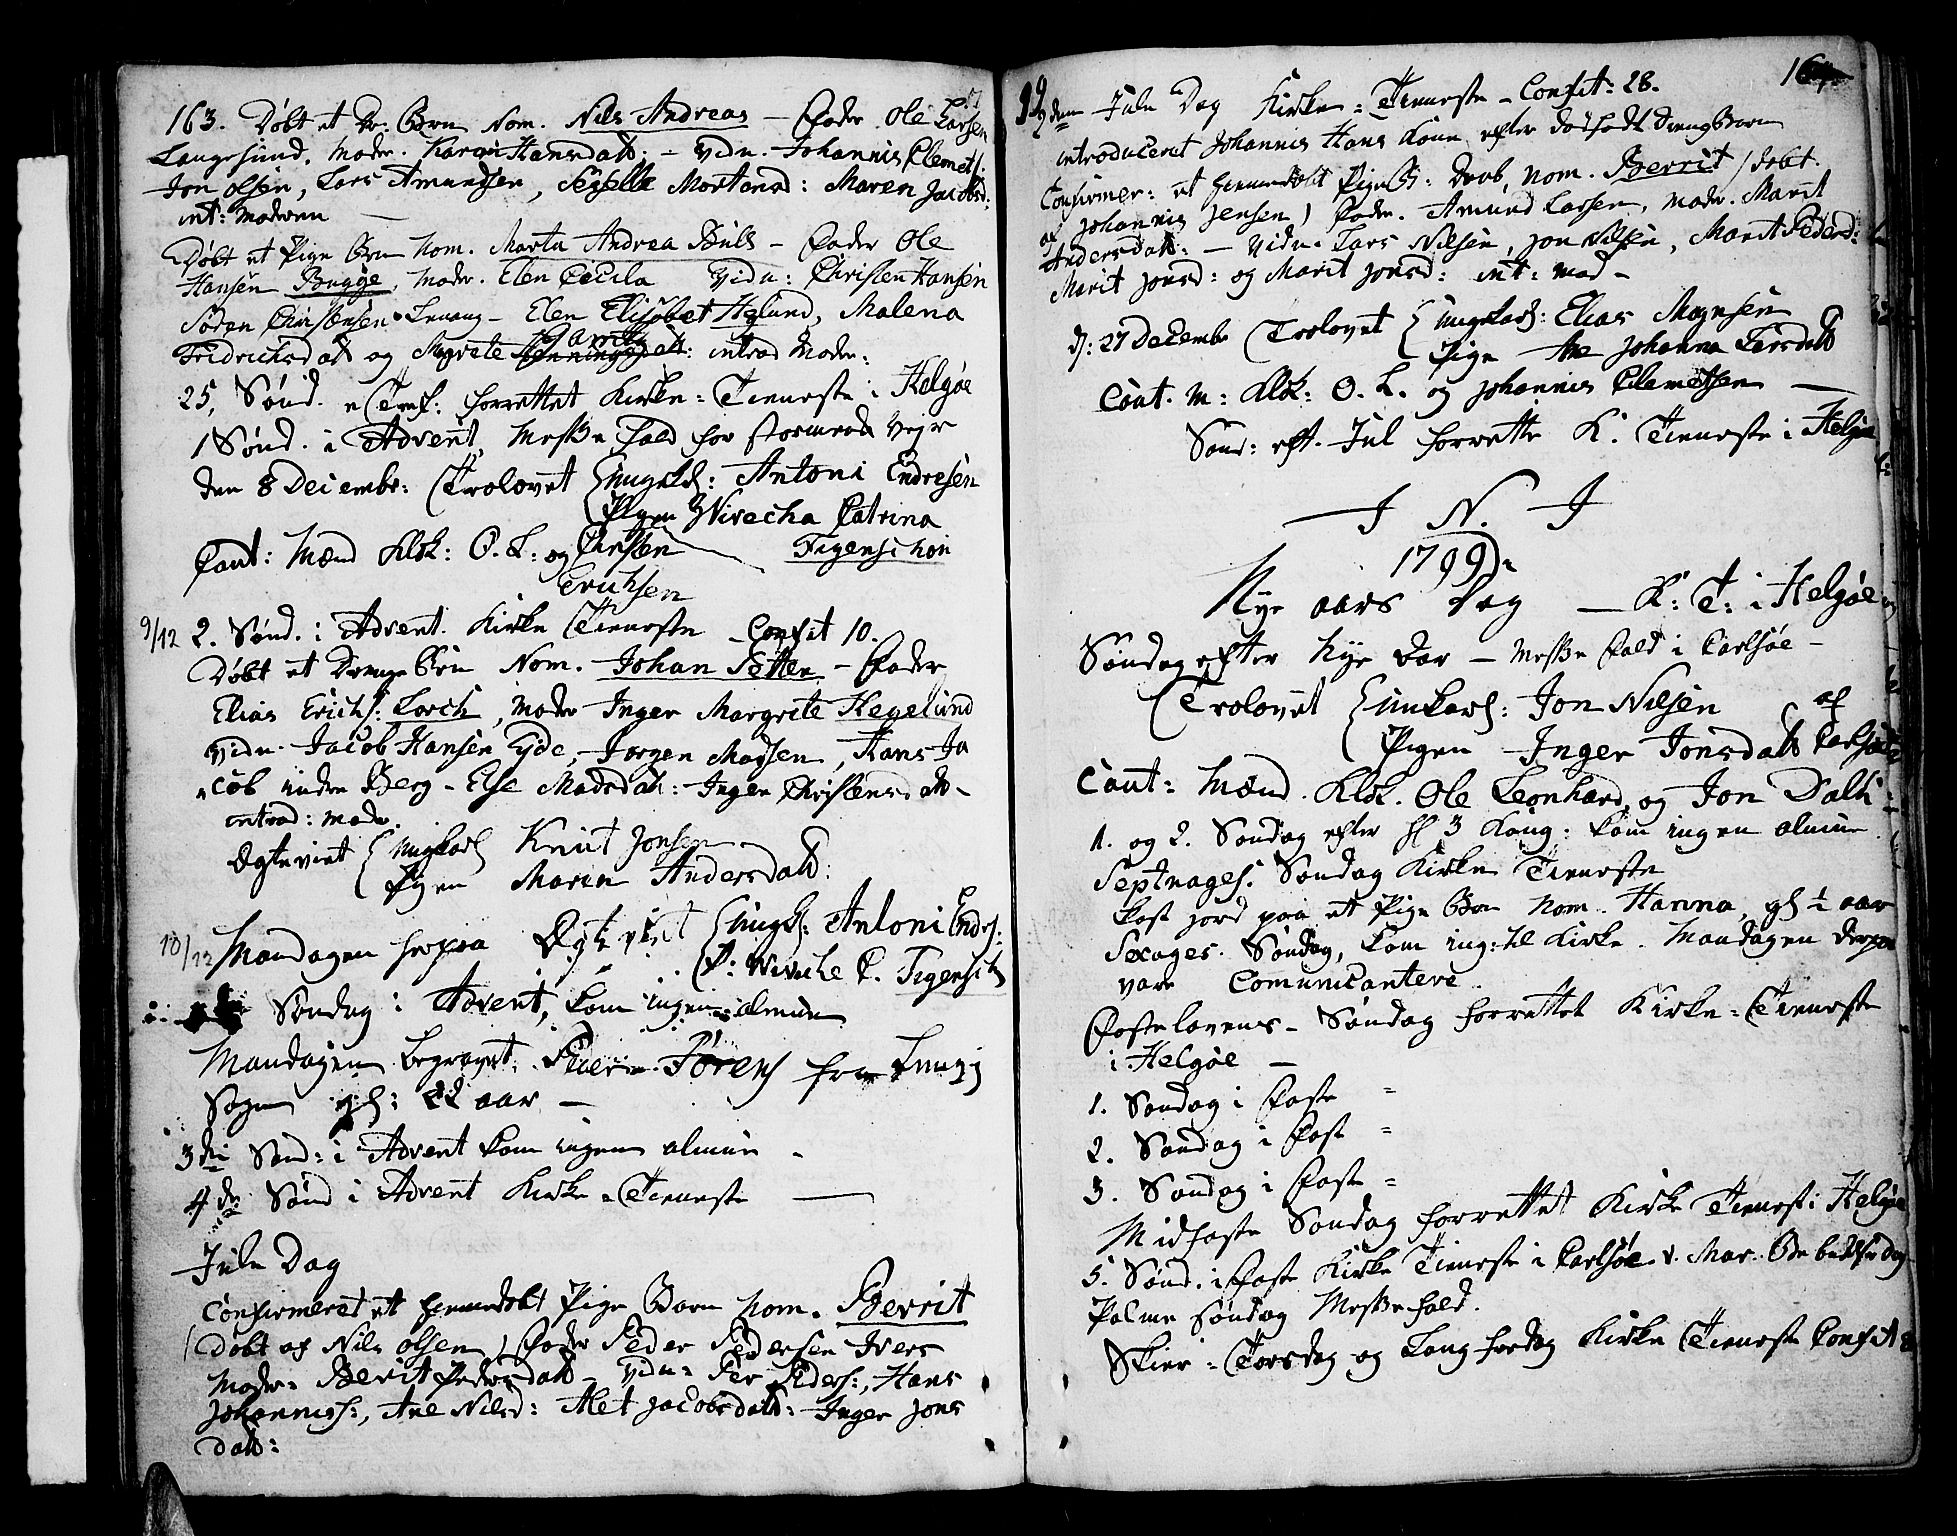 163. Døbt et Dr. Brn Nom. Nils Andreas – Fader Ole Larsen
Langesund, Moder. Karen Hansdatt: – Vidn. Johannis Clemets:
Jon Olsen, Lars Amundsen, Sezelle Mortensd: Maren Jacobsd:
int: Moderen
Døbt et Pige Brn Nom. Marta Andrea Bull – Fader Ole
Hansen Bugge, Moder. Elen Cecila Vidn: Christen Hansen
Søden Christensen Lenang – Elen Elisabet Heglund, Malena
Fridrichsdatt og Mgrete introd Moder:
25, Sønd. e Trinf: forrettet Kirke-Tieneste i Helgøe
1 Sønd. i Advent, Messe Fald for stormende Vejr
den 8 Decembr: Trolovet Ungkarl: Antoni Endresen
Pigen Wivecha Catrina
Figenschou
Caut: Mænd Klok: O. L: og Christen
Erichsen
9/12 2. Sønd. i Advent. Kirke Tieneste – Confit 10.
Døbt et Drenge Brn Nom. Johan Petter – Fader
Elias Erichs: Lorch, Moder Inger Margrete Hegelund
Vidn. Jacob Hansen Eyde, Jørgen Madsen, Hans Ja
cob under Berg – Else Madsdatt: Inger Christensdatt –
introd: moder.
Ægteviet Ungkarl Knut Jonsen
Pigen Maren Andersdatt:
10/12 Mandagen herpaa Ægteviet Ungk: Antoni Endres:
P: Wivicke C. Figensch
Søndag i Advent, kom ingen almue
Mandagen begravet: Peder Sørens fra Lyngs
Sogn gl: 22 aar –
3die Sønd: i Advent kom ingen almue –
4de Sønd i Advent Kirke-Tieneste –
Jule Dag
Confirmeret et hiemmedøbt Pige Barn Nom. Berrit
(Døbt af Nils Olsen) Fader Peder Pedersen Ivers
Moder: Berit Pedersdatt – Vidn: Per Peders:, Hans
Johanniss:, Ane Nilsd: Alet Jacobsdatt: Inger Jons
datt:
164
2den Jule Dag Kirke-Tieneste – Confit: 28.
introduceret Johannis Hans Kone efter dødfødt Drengbarn
Confirmer: et hiemmedøbt Pige B: Daab, Nom. Berrit (døbt
af Johannis Jensen) Fader. Amund Larsen, Moder. Marit
Andersdatt: – Vidn. Lars Nilsen, Jon Nilsen, Marit Pedersd:
Marit Jonsd: og Marit Jonsd: int: Mod –
d: 27 Decembr Trolovet Ungkarl: Elias Mognsen
Pige Ane Johanna Larsdatt
Caut. M: Klok: O. L. og Johannis Clemetsen –
Sønd: eft. Jul forrette K. Tieneste i Helgøe
I N. J
1799
Nye aars Dag – K: T: i Helgøe
Søndag efter Nye Aar – Messe Fald i Carlsøe –
Trolovet Ungkarl: Jon Nilsen af
Pigen Inger Jonsdatt Carlsøe
Caut: Mænd. Klok. Ole Leonhard, og Jon Dalk
1. og 2. Søndag efter Hl 3 Kong: kom ingen almue
Septuages. Søndag Kirke Tieneste
Kast jord paa et Pige Brn Nom. Hanna, gl ½ aar
Sexages. Søndag, kom ing: til Kirke. Mandagen derpaa
vare Comunicantere.
Fastelavens – Søndag forrettet Kirke-Tieneste
i Helgøe –
1. Søndag i Faste =
2. Søndag i Fast =
3. Søndag i Faste =
Midfaste Søndag forrettet Kirke Tienest i Helgøe
5. Sønd. i Faste Kirke Tieneste i Carlsøe v. Mar. Bebudelse dag
Palme Søndag Messefald.
Skier-Torsdag og Langfredag Kirke Tieneste Confit 8